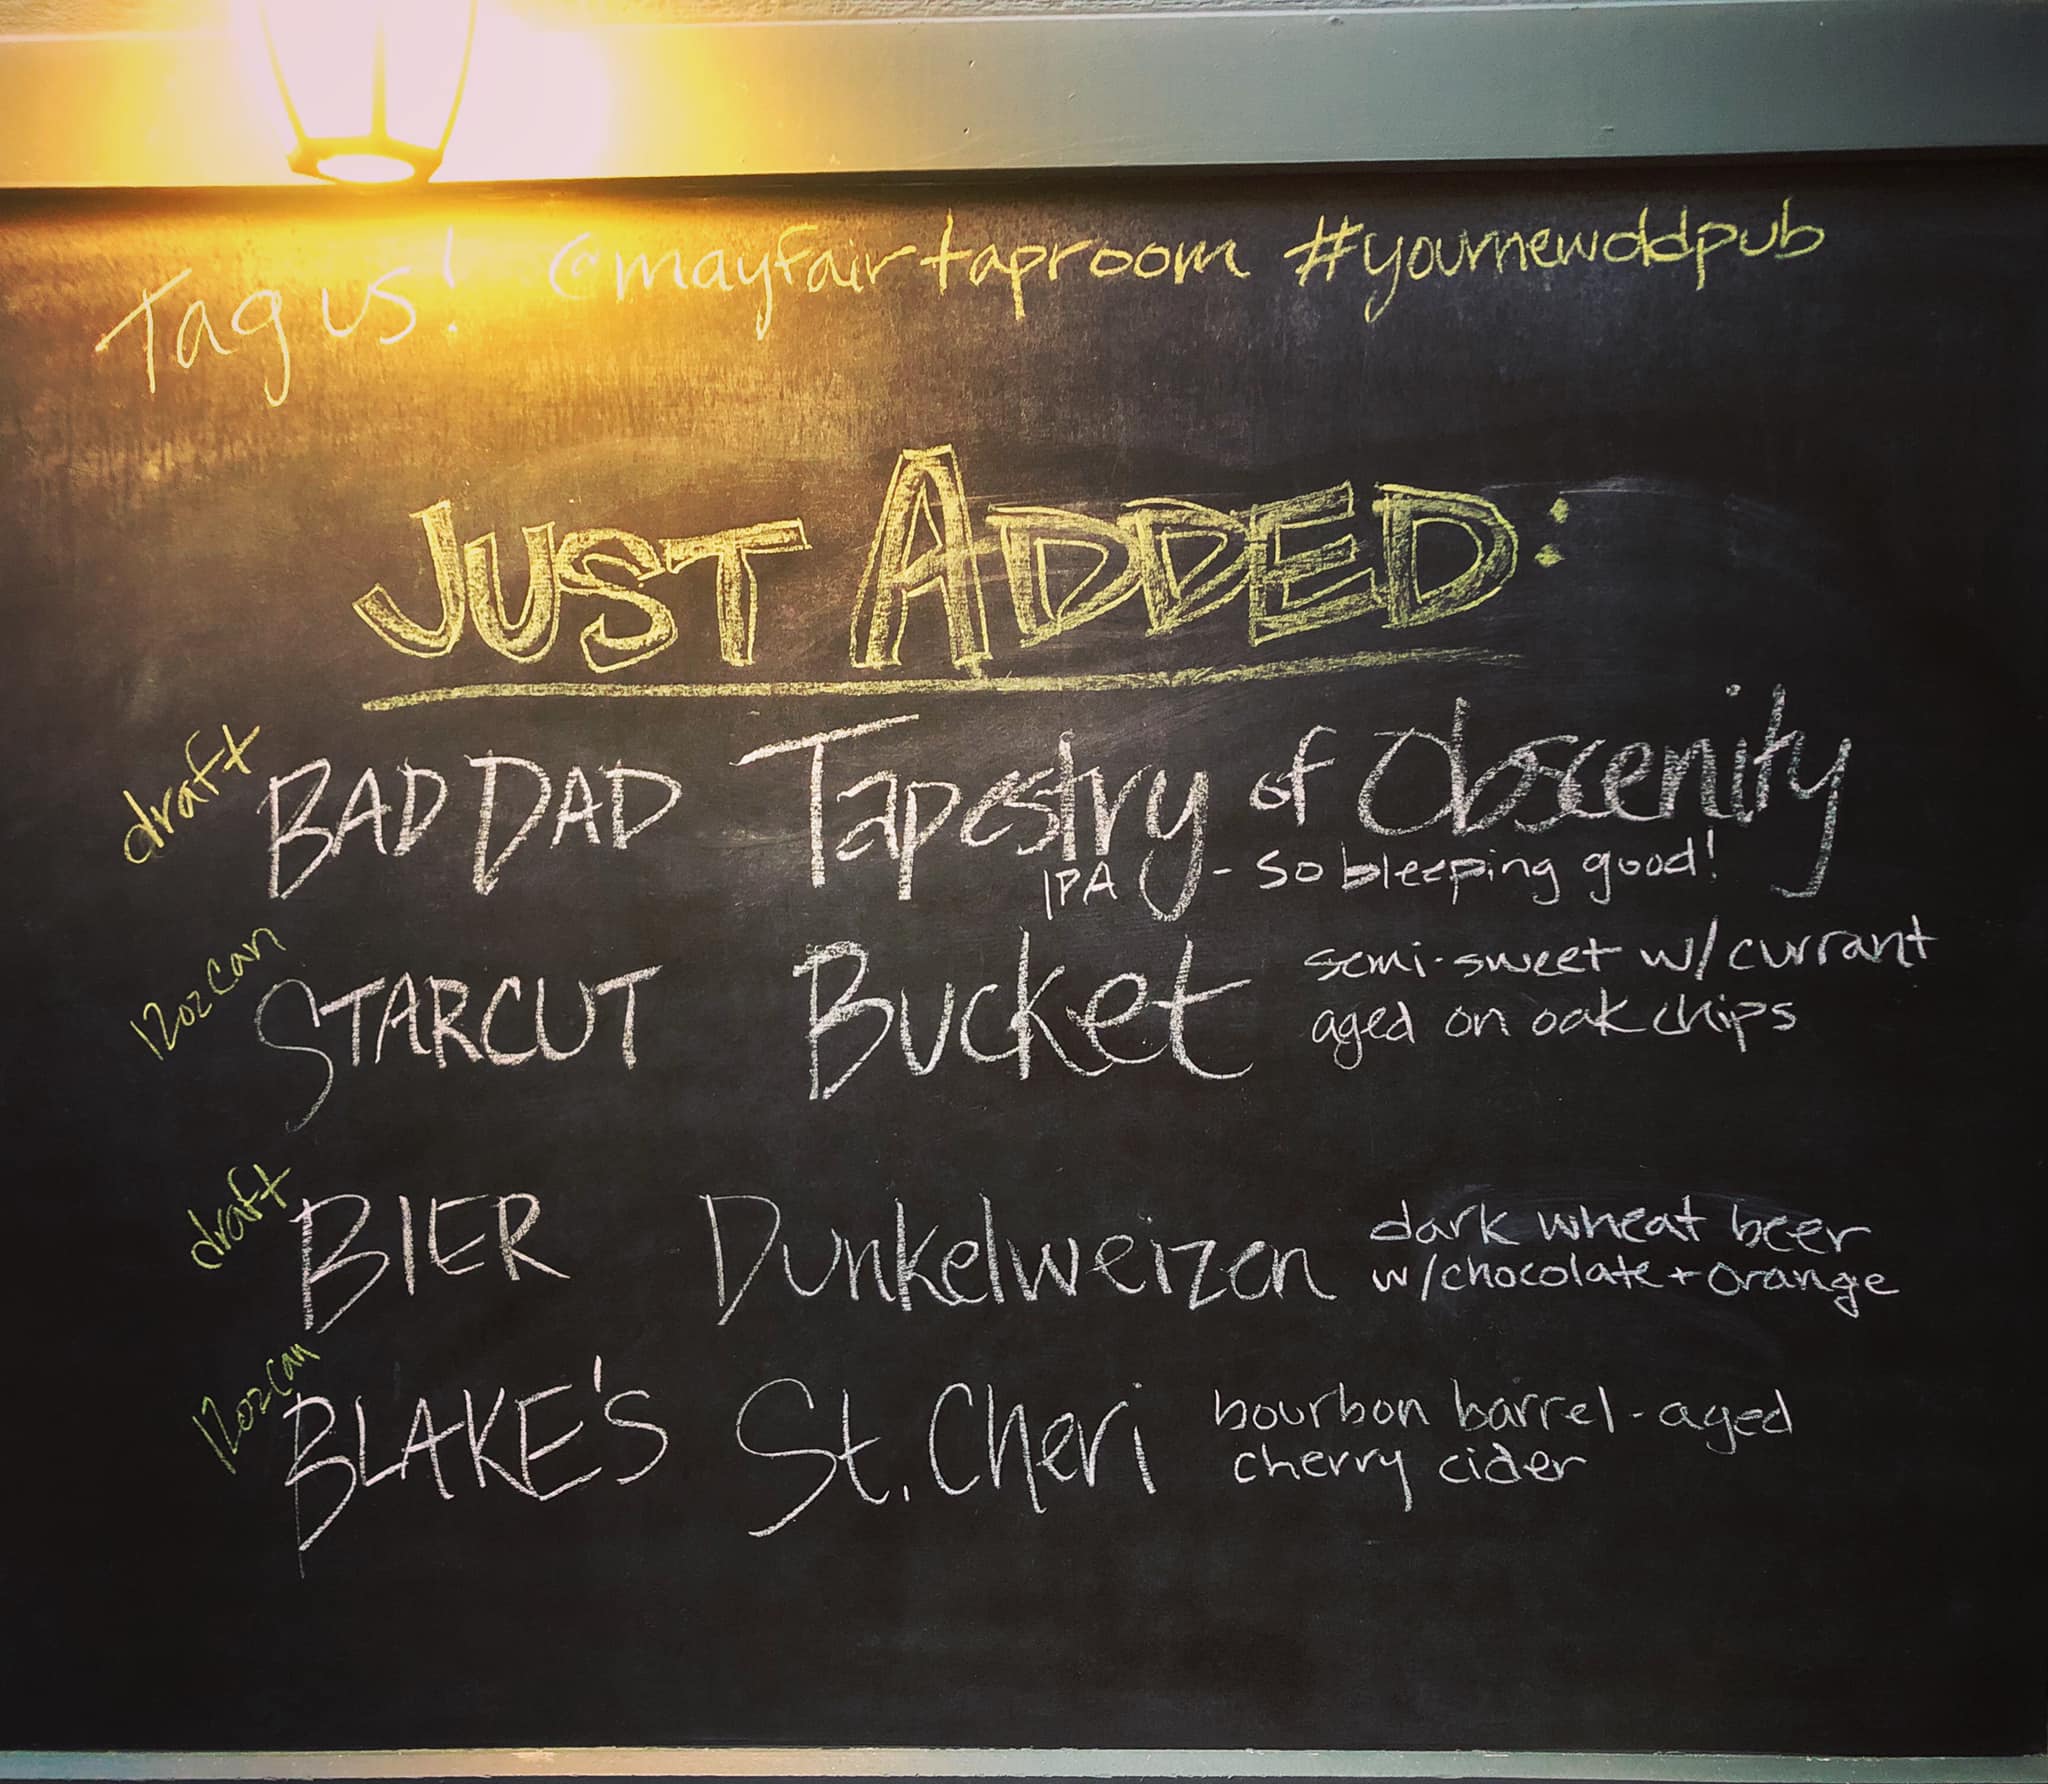 Tag us! @mayfairtaproom #yournewoldpub
JUST ADDED:
draft BAD DAD Tapestry of Obscenity
IPA - so bleeping good!
12oz can STARCUT Bucket semi-sweet w/currant
aged on oak chips
draft BIER Dunkelweizen dark wheat beer
w/chocolate + orange
12oz can BLAKE'S St. Cheri bourbon barrel-aged
cherry cider